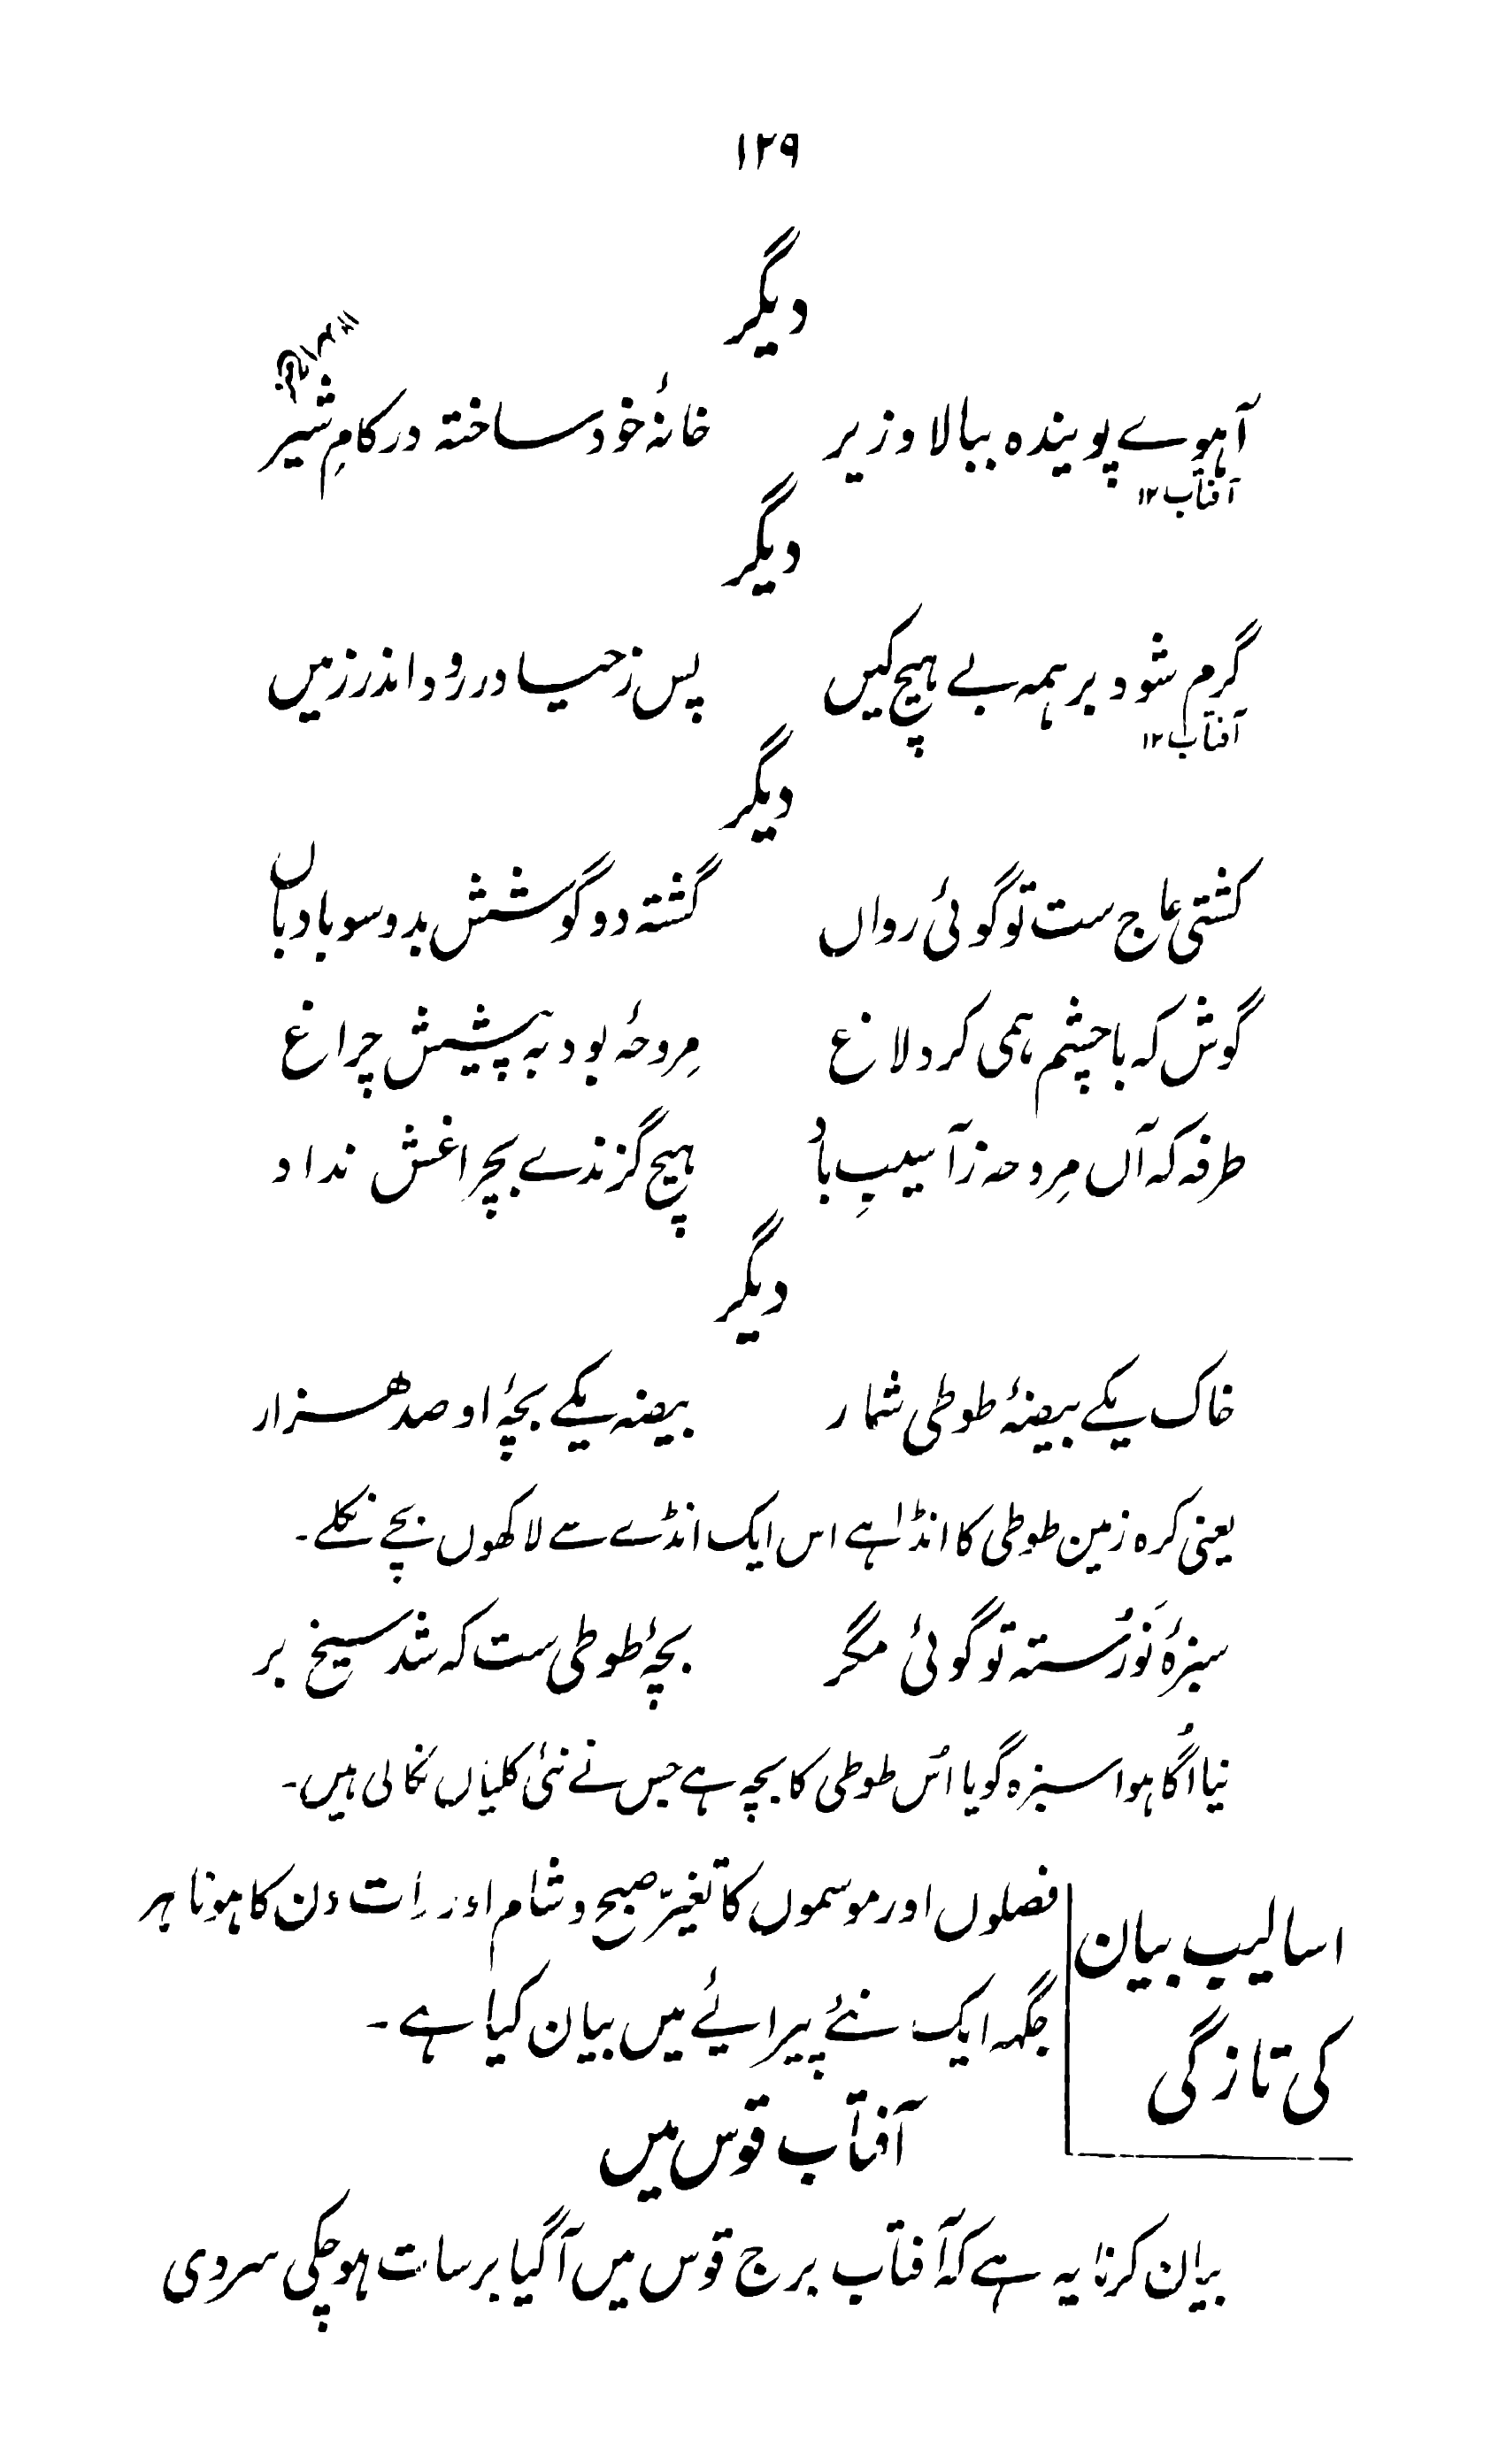 ۱۲۹
دیگر
آہوے پویندہ ببالا و زیر خانۂ خود ساختہ در کامِ شیر
آفتاب ۱۲
دیگر
گرم شود بر ہمہ بے ہیچ کیں پس ز حیا در رود اندر زمیں
آفتاب ۱۲
دیگر
کشتی عاج ست تو گوئی رواں گشتہ دو گوشش بدو سو بادباں
گوش کہ با چشم ہمی کرد لاغ مِروحۂ بود بہ پیشش چراغ
طرفہ کہ آں مِروحہ ز آسیبِ باد ہیچ گزندے بچراغش نداد
دیگر
خاک یکے بیضۂ طوطی شمار بیضہ یکے بچۂ او صد ہزار
یعنی کرہ زمین طوطی کا انڈا ہے اس ایک انڈے سے لاکھوں بچے نکلے۔
سبزۂ نَورُستہ تو گوئی مگر بچۂ طوطی ست کہ شد سیخ بر
نیا اُگا ہوا سبزہ گویا اُس طوطی کا بچہ ہے جس نے نئی کلیاں نکالی ہیں۔
اسالیب بیان کی تازگی
فصلوں اور موسموں کا تغیّر صبح و شام اور رات دن کا ہونا ہر
جگہ ایک نئے پیرائے میں بیان کیا ہے۔
آفتاب قوس میں
بیان کرنا یہ ہے کہ آفتاب برج قوس میں آگیا برسات ہوچکی سردی